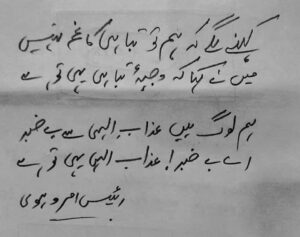 کہنے لگے کہ ہم کو تباہی کا غم نہیں
میں نے کہا کہ وجہِ تباہی یہی تو ہے
ہم لوگ ہیں عذابِ الہی سے بے خبر
اے بے خبر! عذابِ الہی یہی تو ہے
رئیس امروہوی